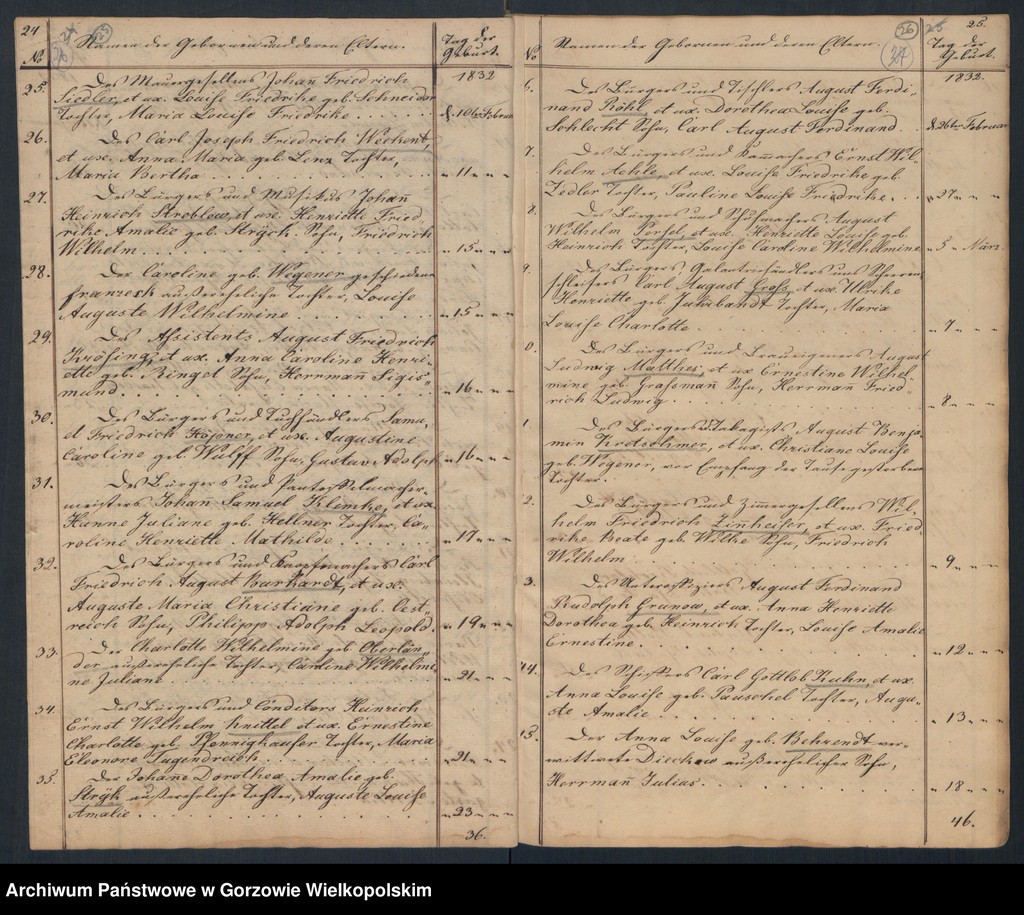 24
25
No
Namen der Gebornen und deren Eltern.
Tag der
Geburt.
1832
25. Des Mauergesellens Johañ Friedrich
Siedler, et ux. Louise Friedrike geb. Schneider
Tochter, Maria Louise Friedrike . . . . d. 10ter Februar
26. Des Carl Joseph Friedrich Weckent,
et ux. Anna Maria geb. Lenz Tochter,
Maria Bertha . . . . „ 11 „ „
27. Des Bürgers und Musikus Johañ
Heinrich Stroblow, et ux. Henriette Fried
rike Amalie geb. Strÿck Sohn, Friedrich
Wilhelm . . . . „ 15 „ „
28. Der Caroline geb. Wegener geschiedene
Franzeck außereheliche Tochter, Louise
Auguste Wilhelmine . . . . „ 15 „ „
29. Des Assistents August Friedrich
Krösing, et ux. Anna Caroline Henri-
ette geb. Ringel Sohn, Herrmañ Sigis-
mund . . . . „ 16 „ „
30. Des Bürgers und Tuchhändlers Samu,
el Friedrich Höpner, et ux. Augustine
Caroline geb. Wulff Sohn, Gustav Adolph „ 16 „ „
31. Des Bürgers und Pantoffelmacher-
meisters Johañ Samuel Klemke, et ux.
Hanne Juliane geb. Hellner Tochter, Ca-
roline Henriette Mathilde . . . . „ 17 „ „
32. Des Bürgers und Knopfmachers Carl
Friedrich August Burkardt, et ux.
Auguste Maria Christiane geb. Oest,
reich Sohn, Philipp Adolph Leopold. „ 19 „ „
33. Der Charlotte Wilhelmine geb. Oberlän-
der außereheliche Tochter, Caroline Wilhelmi-
ne Juliane . . . . „ 21 „ „
34. Des Bürgers und Conditors Heinrich
Ernst Wilhelm Knittel et ux. Ernestine
Charlotte geb. Pfennighauser Tochter, Maria
Eleonore Tugendreich . . . . „ 21 „ „
35. Der Johañe Dorothea Amalie geb.
Strÿk außereheliche Tochter, Auguste Louise
Amalie . . . . „ 23 „ „
36.
26
25
25.
No
Namen der Gebornen und deren Eltern.
Tag der
Geburt.
1832.
6. Des Bürgers und Tischlers August Ferdi-
nand Röhl, et ux. Dorothea Louise geb.
Schlecht Sohn, Carl August Ferdinand . d. 26ter Februar
7. Des Bürgers und Kam̃achers Ernst Wil-
helm Aehle, et ux. Louise Friedrike geb.
Zedler Tochter, Pauline Louise Friedrike . . „ 27 „ „
8. Des Bürgers und Schuhmachers August
Wilhelm Porsel, et ux. Henriette Louise geb.
Heinrich Tochter, Louise Caroline Wilhelmine „ 5 „ März
9. Des Bürgers, Galanteriehändlers und Scheeren,
schleifers Carl August Groß, et ux. Ulrike
Henriette geb. Juhrbandt Tochter, Maria
Louise Charlotte . . . . „ 7 „ „
0. Des Bürgers und Braueigeners August
Ludwig Matthes, et ux Ernestine Wilhel
mine geb. Graßmañ Sohn, Herrman Fried
rich Ludwig . . . . „ 8 „ „
1. Des Bürgers u. August Benja-
min Kretschmer, et ux. Christiane Louise
geb. Wegener, vor Empfang der Taufe gestorbene
Tochter.
2. Des Bürgers und Zimmergesellens Wil-
helm Friedrich Zinheiser, et ux. Fried
rike Beate geb. Wilke Sohn, Friedrich
Wilhelm . . . . „ 9 „ „
3. Des Unteroffiziers August Ferdinand
Rudolph Grunow, et ux. Anna Henriette
Dorothea geb. Heinrich Tochter, Louise Amalie
Ernestine . . . . „ 12 „ „
44. Des Schiffers Carl Gottlob Kuhn, et ux.
Anna Louise geb. Pauschel Tochter, Augu-
ste Amalie . . . . „ 13 „ „
45. Der Anna Louise geb. Behrendt ver-
wittwete Dieckow außerehelicher Sohn,
Herrmañ Julius . . . . „ 18 „ „
46.
Archiwum Państwowe w Gorzowie Wielkopolskim